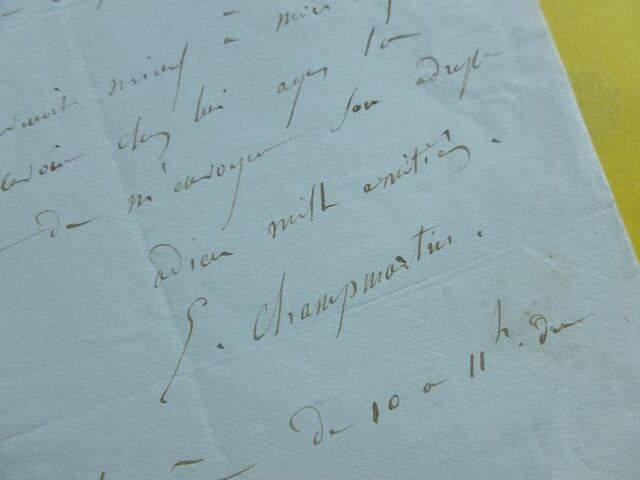 mieux à
chez lui ayez la
de m'envoyer son adresse
adieu mille amitiés.
E. Champmartin.
de 10 a 11h. du